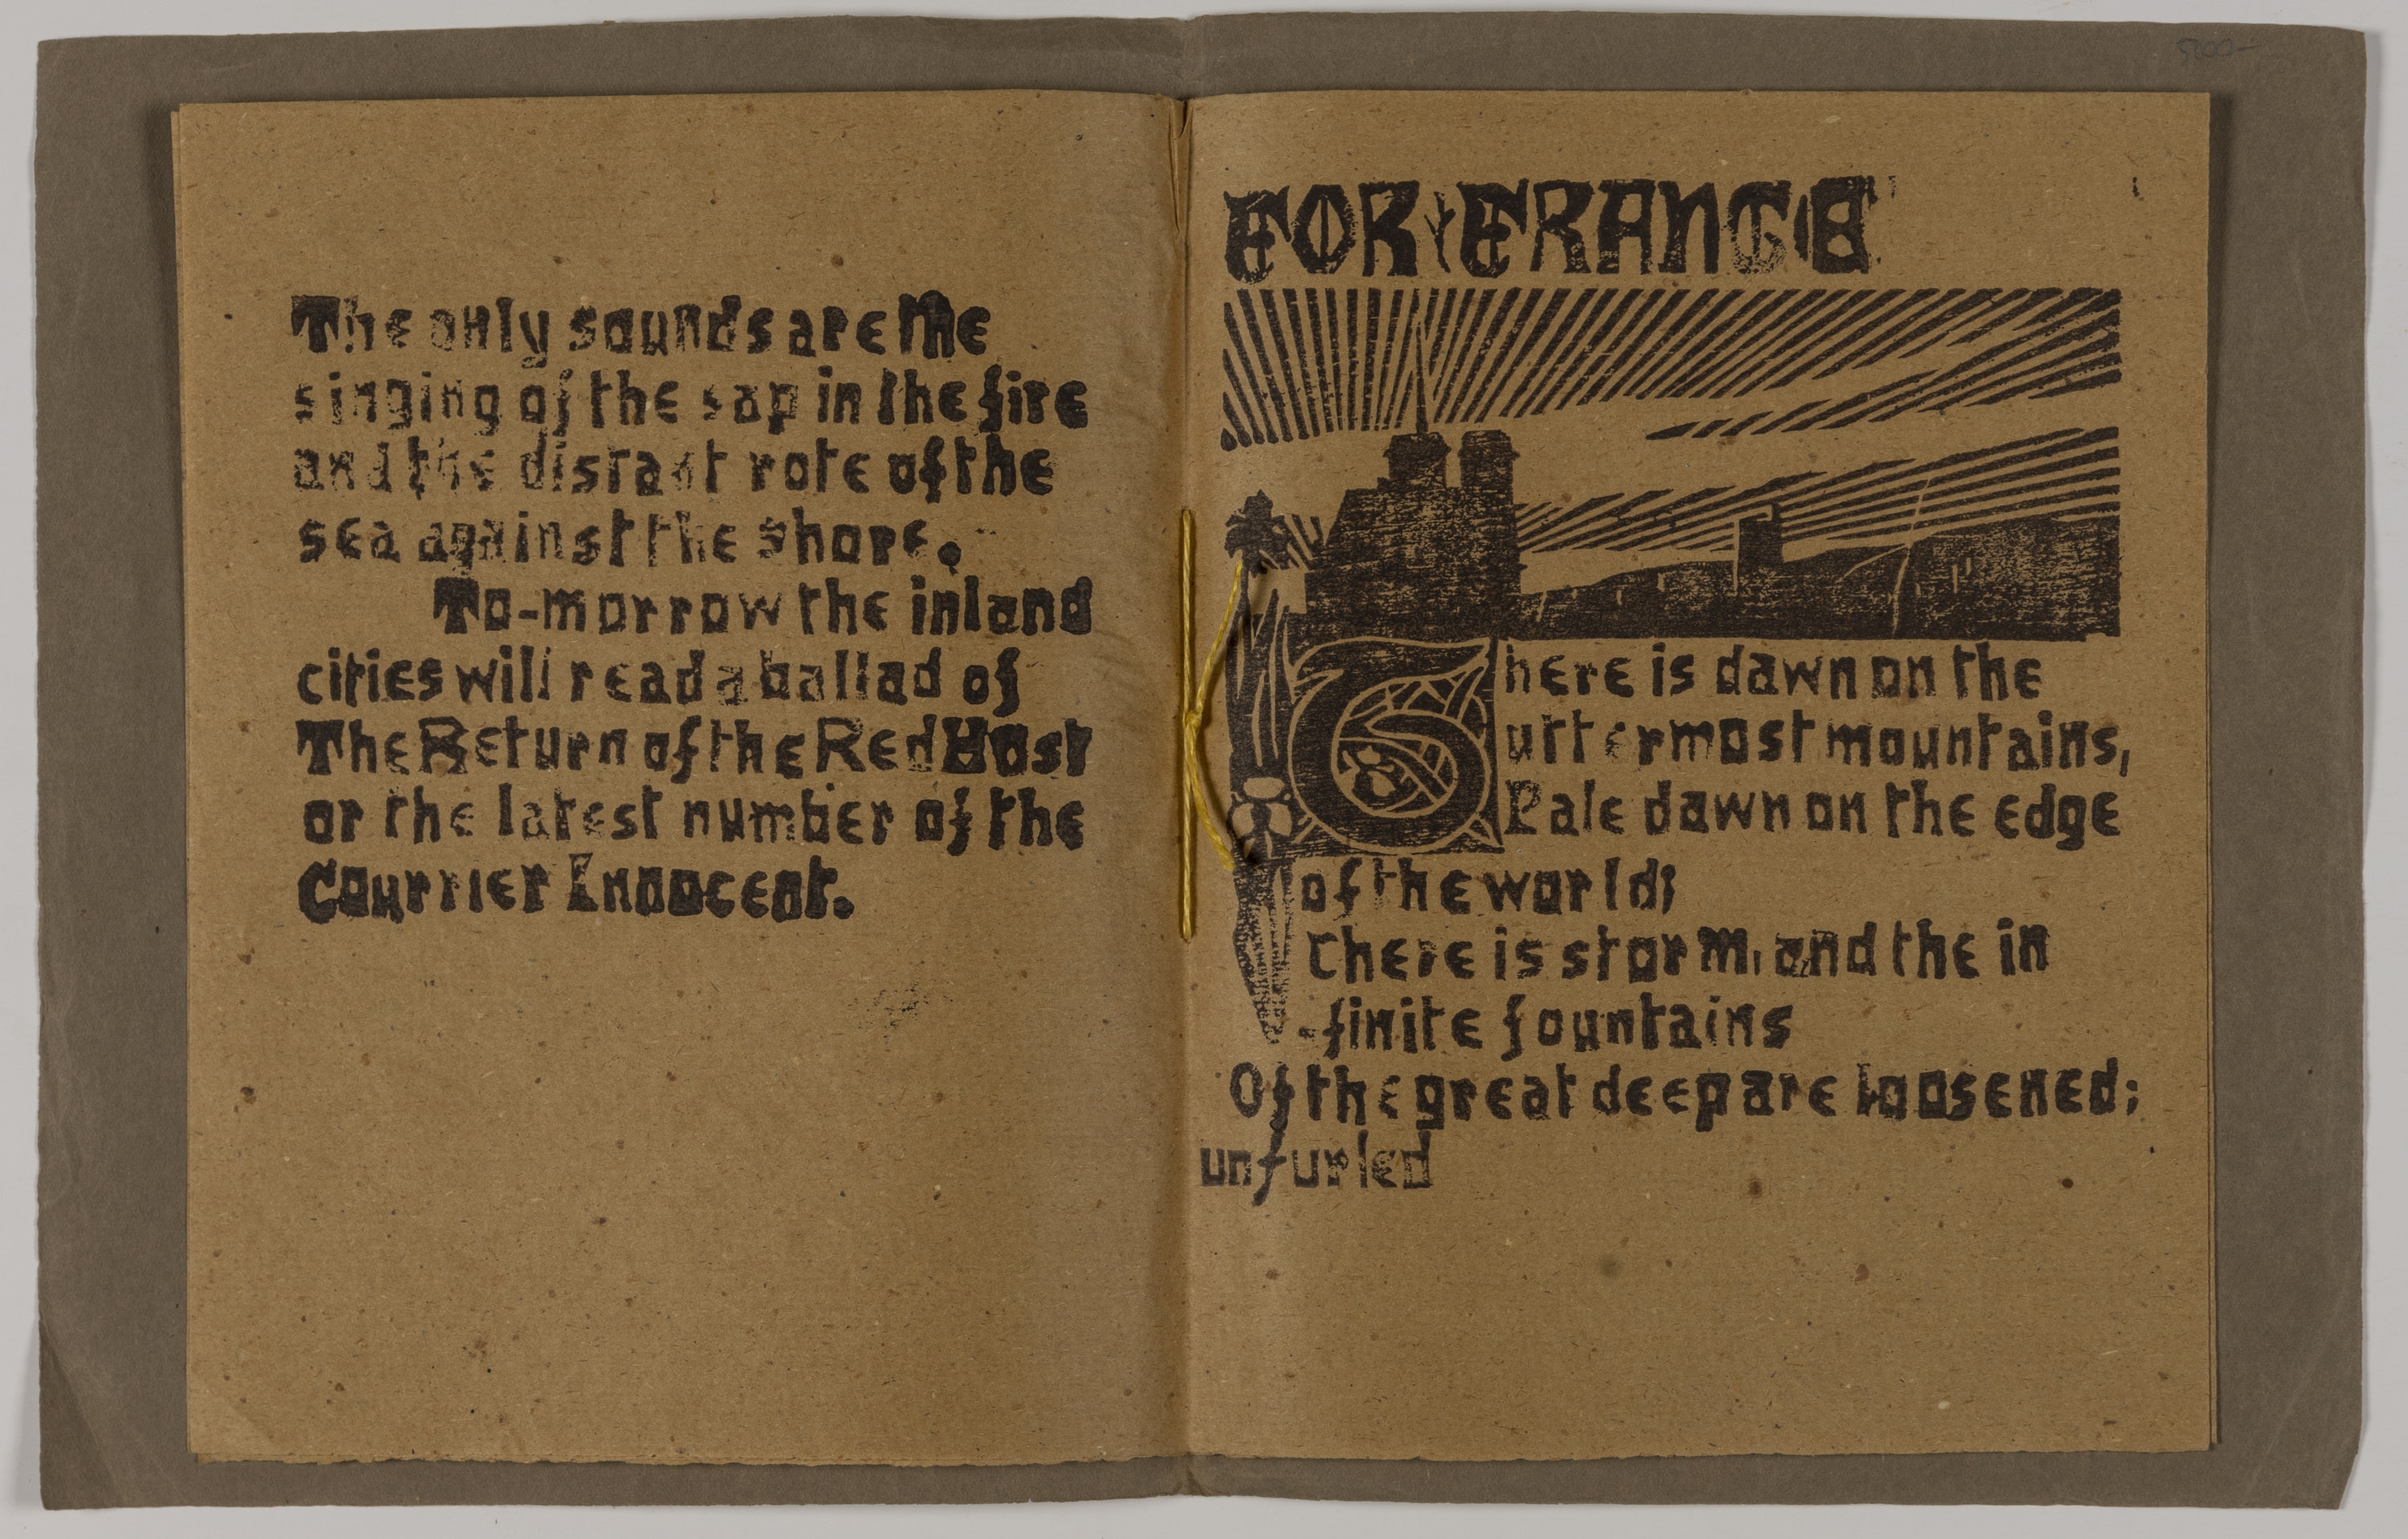 The only sounds are the
singing of the sap in the fire
and the distant rote of the
sea against the shore.
To-morrow the inland
cities will read a ballad of
The Return of the Red Host
or the latest number of the
Courrier Innocent.
FOR FRANCE
There is dawn on the
uttermost mountains,
Pale dawn on the edge
of the world;
There is storm, and the in
finite fountains
Of the great deep are loosened;
unfurled